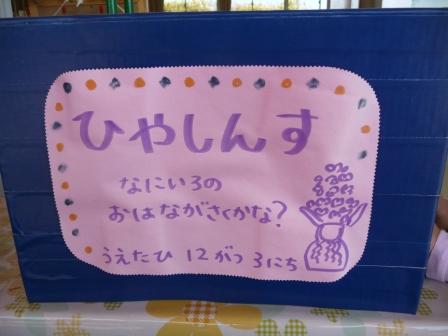 ひやしんす
なにいろの
おはながさくかな?
うえたひ 12がつ 3にち